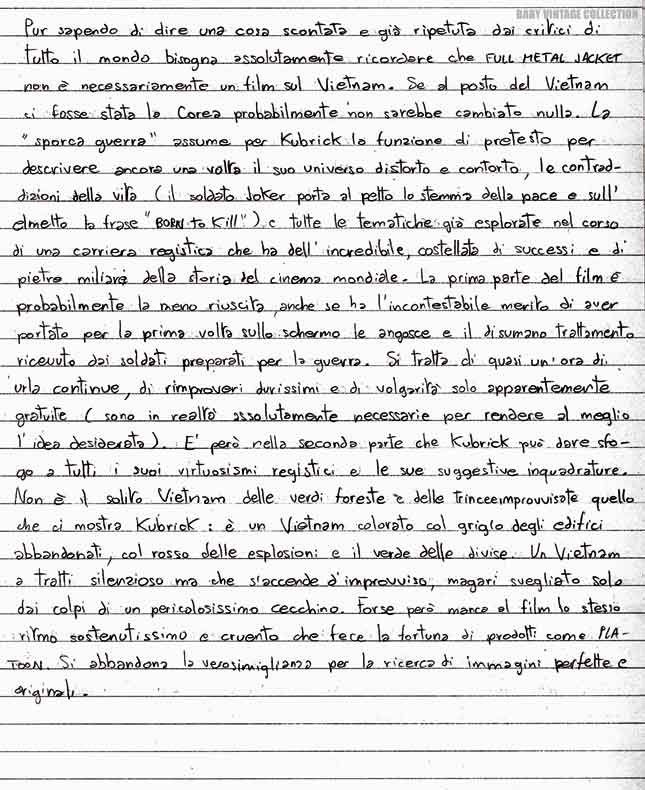 BABY VINTAGE COLLECTION
Pur sapendo di dire una cosa scontata e già ripetuta dai critici di
tutto il mondo bisogna assolutamente ricordare che FULL METAL JACKET
non è necessariamente un film sul Vietnam. Se al posto del Vietnam
ci fosse stata la Corea probabilmente non sarebbe cambiato nulla. La
"sporca guerra" assume per Kubrick la funzione di pretesto per
descrivere ancora una volta il suo universo distorto e contorto, le contrad-
dizioni della vita (il soldato Joker porta al petto lo stemma della pace e sull'
elmetto la frase "BORN to Kill") e tutte le tematiche già esplorate nel corso
di una carriera registica che ha dell'incredibile, costellata di successi e di
pietre miliari della storia del cinema mondiale. La prima parte del film è
probabilmente la meno riuscita, anche se ha l'incontestabile merito di aver
portato per la prima volta sullo schermo le angosce e il disumano trattamento
ricevuto dai soldati preparati per la guerra. Si tratta di quasi un'ora di
urla continue, di rimproveri durissimi e di volgarità solo apparentemente
gratuite (sono in realtà assolutamente necessarie per rendere al meglio
l'idea desiderata). E' però nella seconda parte che Kubrick può dare sfo-
go a tutti i suoi virtuosismi registici e le sue suggestive inquadrature.
Non è il solito Vietnam delle verdi foreste e delle trincee improvvisate quello
che ci mostra Kubrick: è un Vietnam colorato col grigio degli edifici
abbandonati, col rosso delle esplosioni e il verde delle divise. Un Vietnam
a tratti silenzioso ma che s'accende d'improvviso, magari svegliato solo
dai colpi di un pericolosissimo cecchino. Forse però manca al film lo stesso
ritmo sostenutissimo e cruento che fece la fortuna di prodotti come PLA-
TOON. Si abbandona la verosimiglianza per la ricerca di immagini perfette e
originali.